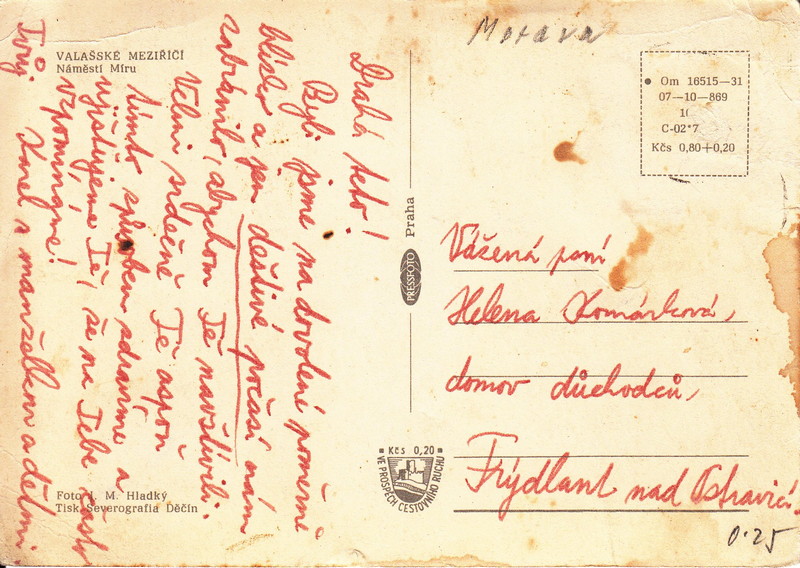 Morava
VALAŠSKÉ MEZIŘÍČÍ
Náměstí Míru
Om 16515—31
07—10—869
C-02*7
Kčs 0,80+0,20
Drahá teto!
Byli jsme na dovolené poměrně
blízko a jen deštivé počasí nám
zabránilo, abychom Tě navštívili.
Velmi srdečně Tě aspoň
tímto způsobem zdravíme a
ujišťujeme Tě, že na Tebe často
vzpomínáme!
Tvůj Karel s manželkou a dětmi
Praha
PRESSFOTO
Vážená paní
Helena Komárková,
domov důchodců,
Frýdlant nad Ostravicí
Kčs 0,20
VE PROSPĚCH CESTOVNÍHO RUCHU
Foto J. M. Hladký
Tisk Severografia Děčín
0.25